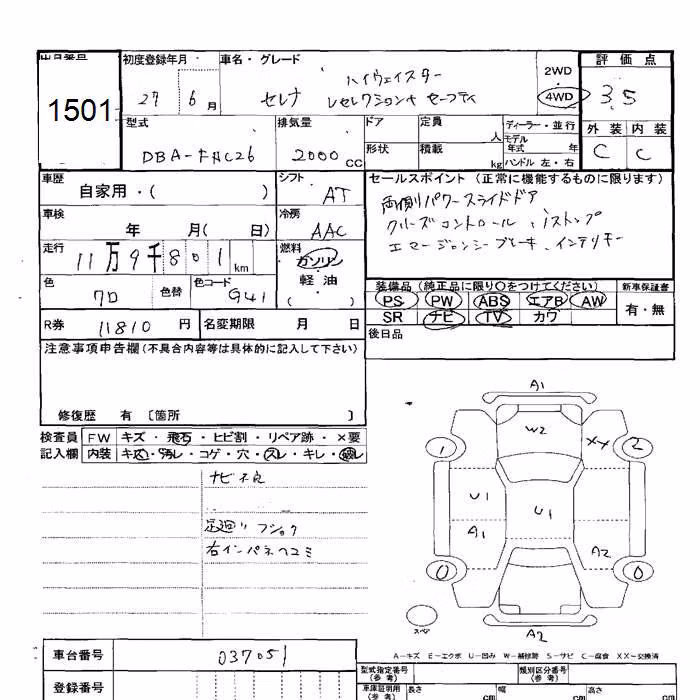 出品番号 初度登録年月 車名・グレード 評価点
1501 27 6月 セレナ ハイウェイスター 2WD 4WD 3.5
Vセレクション+セーフティ
型式 排気量 ドア 定員 人 ディーラー・並行 外装 内装
DBA-FNC26 2000 CC 形状 積載 kg モデル年式 年 C C
ハンドル 左・右
車歴 シフト セールスポイント (正常に機能するものに限ります)
自家用・( ) AT 両側パワースライドドア
車検 冷房 クルーズコントロール、iストップ
年 月( 日) AAC エマージェンシーブレーキ、インテリキー
走行 11万9千801km 燃料 ガソリン
軽・油
( )
色 色替 色コード 装備品 (純正品に限り○をつけてください) 新車保証書
クロ G41 PS PW ABS エアB AW 有・無
R券 11810円 名変期限 月 日 SR ナビ TV カワ
後日品
注意事項申告欄 (不具合内容等は具体的に記入して下さい)
修復歴 有 〔箇所 〕
検査員 FW キズ・飛石・ヒビ割・リペア跡・×要
記入欄 内装 キズ・汚レ・コゲ・穴・スレ・キレ・破レ
ナビ不良
足廻リ フショク
右インパネヘコミ
A1
W2 XX
1 2
U1 U1
A1 A2
0 0
スペア
A2
A-キズ E-エクボ U-凹み W-補修跡 S-サビ C-腐食 XX-交換済
車台番号 037051
登録番号
型式指定番号(参考) 類別区分番号(参考)
車庫証明用(参考) 長さ cm 幅 cm 高さ cm